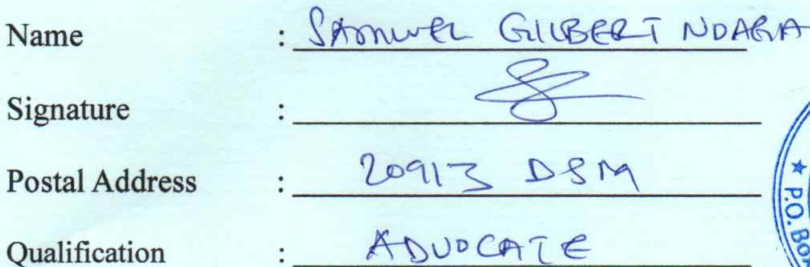 Name : SAMWEL GILBERT NDAGA
Signature :
Postal Address : 20913 DSM
Qualification : ADVOCATE
* P.O. Box